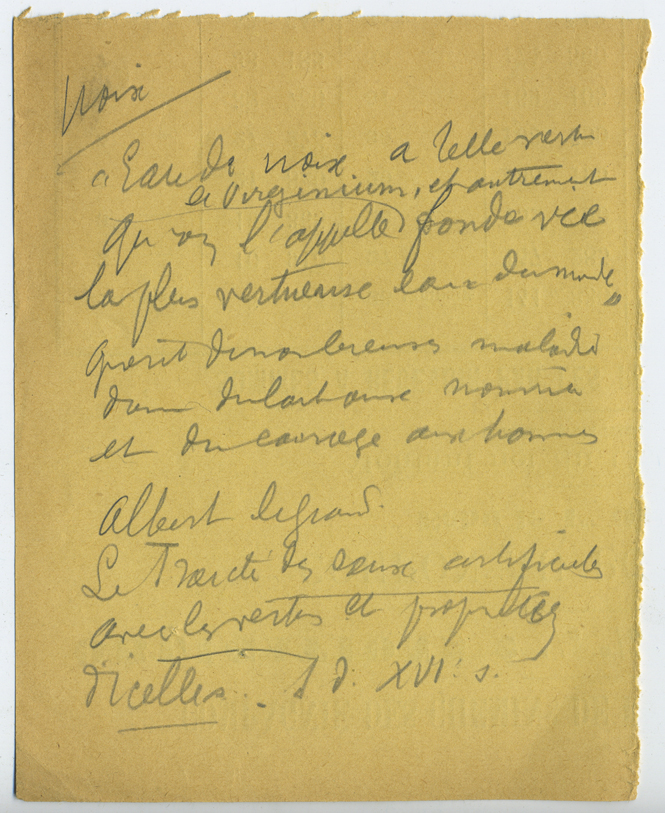 Noix
« Eau de noix a telle vertu
et Virginium, et autrement
qu'on l'appelle fonds vee
la plus vertueuse eau du monde »
guerit de nombreuses maladies
donne du lait aux nourrices
et du courage aux hommes
Albert legrand.
Le Traicté des eaux artificielles
avec les vertus et proprietez
d'icelles. s d. XVIe s.